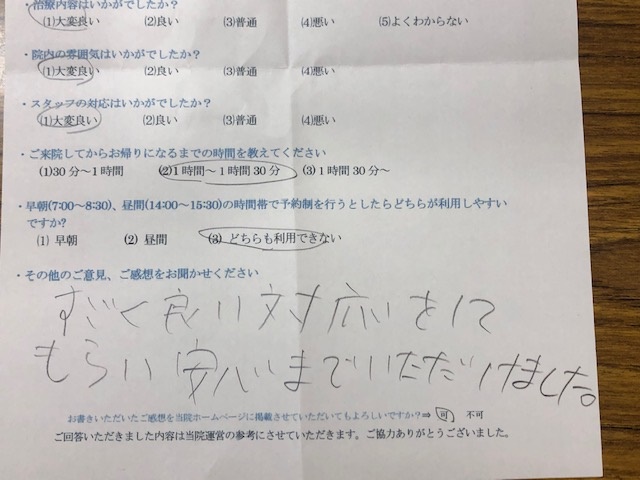 ・治療内容はいかがでしたか?
(1)大変良い (2)良い (3)普通 (4)悪い (5)よくわからない
・院内の雰囲気はいかがでしたか?
(1)大変良い (2)良い (3)普通 (4)悪い
・スタッフの対応はいかがでしたか?
(1)大変良い (2)良い (3)普通 (4)悪い
・ご来院してからお帰りになるまでの時間を教えてください
(1)30分〜1時間 (2)1時間〜1時間30分 (3)1時間30分〜
・早朝(7:00〜8:30)、昼間(14:00〜15:30)の時間帯で予約制を行うとしたらどちらが利用しやすい
ですか?
(1) 早朝 (2) 昼間 (3) どちらも利用できない
・その他のご意見、ご感想をお聞かせください
すごく良い対応をして
もらい安心までいただけました。
お書きいただいたご感想を当院ホームページに掲載させていただいてもよろしいですか?⇒ 可 不可
ご回答いただきました内容は当院運営の参考にさせていただきます。ご協力ありがとうございました。